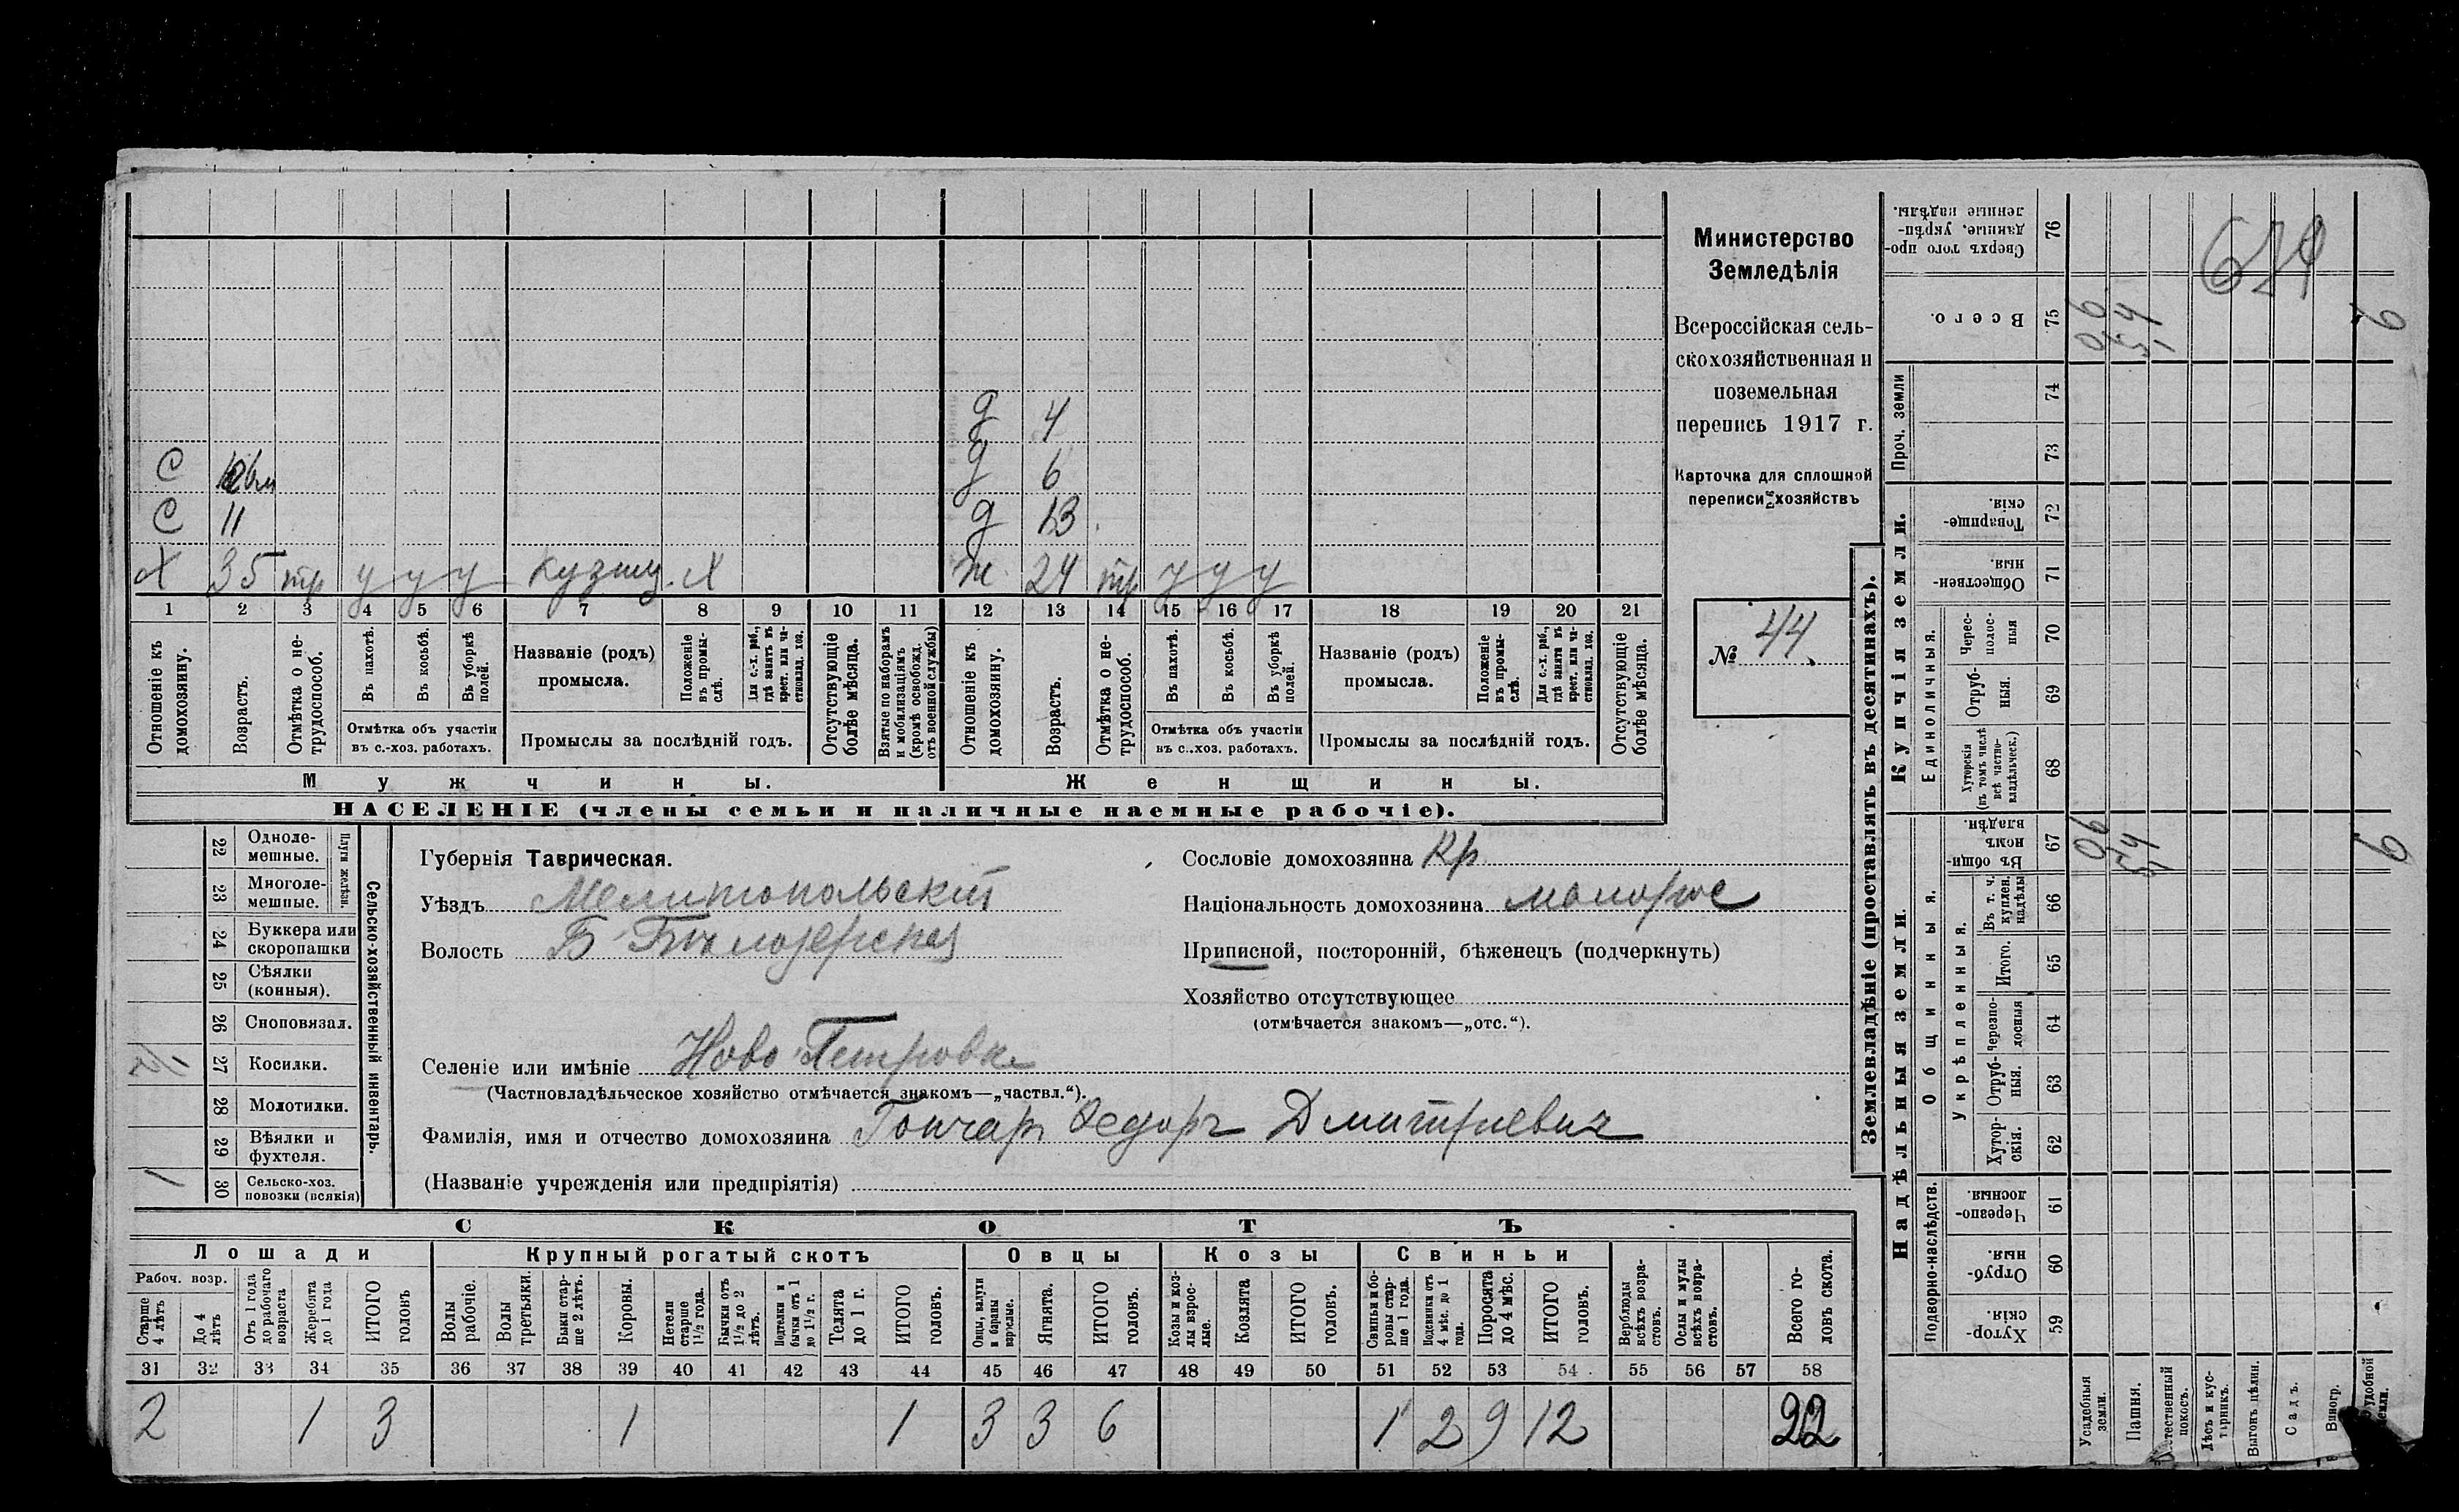 Министерство
Земледѣлія
Всероссійская сель-
скохозяйственная и
поземельная
перепись 1917 г.
Карточка для сплошной
переписи хозяйствъ
№ 44
д 4
С д 6
С 11 д 13
Х 35 тр у у у кузнец. Х ж. 24 тр у у у
1 2 3 4 5 6 7 8 9 10 11 12 13 14 15 16 17 18 19 20 21
Отношеніе къ домохозяину.
Возрастъ.
Отмѣтка о не-трудоспособ.
Въ пахотѣ.
Въ косьбѣ.
Въ уборкѣ полей.
Отмѣтка объ участіи въ с.-хоз. работахъ.
Названіе (родъ) промысла.
Положеніе въ промы-слѣ.
Для с.-х. раб., гдѣ занятъ въ крест. или ча-стновлад. хоз.
Промыслы за послѣдній годъ.
Отсутствующіе болѣе мѣсяца.
Взятые по наборамъ и мобилизаціямъ (кромѣ освобожд. отъ военной службы)
Отношеніе къ домохозяину.
Возрастъ.
Отмѣтка о не-трудоспособ.
Въ пахотѣ.
Въ косьбѣ.
Въ уборкѣ полей.
Отмѣтка объ участіи въ с.-хоз. работахъ.
Названіе (родъ) промысла.
Положеніе въ промы-слѣ.
Для с.-х. раб., гдѣ занята въ крест. или ча-стновлад. хоз.
Промыслы за послѣдній годъ.
Отсутствующіе болѣе мѣсяца.
Мужчины. Женщины.
НАСЕЛЕНІЕ (члены семьи и наличные наемные рабочіе).
Сельско-хозяйственный инвентарь.
Плуги желѣзн.
22 Одноле-мешные.
23 Многоле-мешные.
24 Буккера или скоропашки
25 Сѣялки (конныя).
26 Сноповязал.
27 Косилки.
28 Молотилки.
29 Вѣялки и фухтеля.
1 30 Сельско-хоз. повозки (всякія)
Губернія Таврическая.
Уѣздъ Мелитопольскій
Волость Б-Бѣлозерская
Селеніе или имѣніе Ново Петровка
(Частновладѣльческое хозяйство отмѣчается знакомъ—„частвл.“).
Фамилія, имя и отчество домохозяина Гончаръ Федоръ Дмитриевич
(Названіе учрежденія или предпріятія)
Сословіе домохозяина Кр
Національность домохозяина малорос
Приписной, посторонній, бѣженецъ (подчеркнуть)
Хозяйство отсутствующее
(отмѣчается знакомъ—„отс.“).
СКОТЪ
Лошади Крупный рогатый скотъ Овцы Козы Свиньи
Рабоч. возр.
Старше 4 лѣтъ
До 4 лѣтъ
Отъ 1 года до рабочаго возраста
Жеребята до 1 года
ИТОГО головъ
Волы рабочіе.
Волы третьяки.
Быки стар-ше 2 лѣтъ.
Коровы.
Нетели старше 1½ года.
Бычки отъ 1½ до 2 лѣтъ.
Подтелки и бычки отъ 1 до 1½ г.
Телята до 1 г.
ИТОГО головъ.
Овцы, валухи и бараны взрослые.
Ягнята.
ИТОГО головъ.
Козы и коз-лы взрос-лые.
Козлята
ИТОГО головъ.
Свиньи и бо-ровы стар-ше 1 года.
Подсвинки отъ 4 мѣс. до 1 года.
Поросята до 4 мѣс.
ИТОГО головъ.
Верблюды всѣхъ возра-стовъ.
Ослы и мулы всѣхъ возра-стовъ.
Всего го-ловъ скота.
31 32 33 34 35 36 37 38 39 40 41 42 43 44 45 46 47 48 49 50 51 52 53 54 55 56 57 58
2 1 3 1 1 3 3 6 1 2 9 12 22
Землевладѣніе (проставлять въ десятинахъ).
Надѣльныя земли. Купчія земли. Проч. земли
Подворно-наслѣдств.
Общинныя.
Укрѣпленныя.
Единоличныя.
59 Хутор-скія.
60 Отруб-ныя.
61 Черезпо-лосныя.
62 Хутор-скія.
63 Отруб-ныя.
64 Черезпо-лосныя
65 Итого.
66 Въ т. ч. куплен. надѣлы
67 Въ общин-номъ владѣн. 06 54 6
68 Хуторскія (въ томъ числѣ всѣ частно-владѣльческ.)
69 Отруб-ныя.
70 Черес-полос-ныя
71 Обществен-ныя.
72 Товарище-скія.
73
74
75 Всего. 06 54 6
76 Сверхъ того про-данные, укрѣп-ленные надѣлы.
Усадебныя земли.
Пашня.
покосъ.
Лѣсъ и кус-тарникъ.
Выгонъ цѣлин.
Садъ.
Виногр.